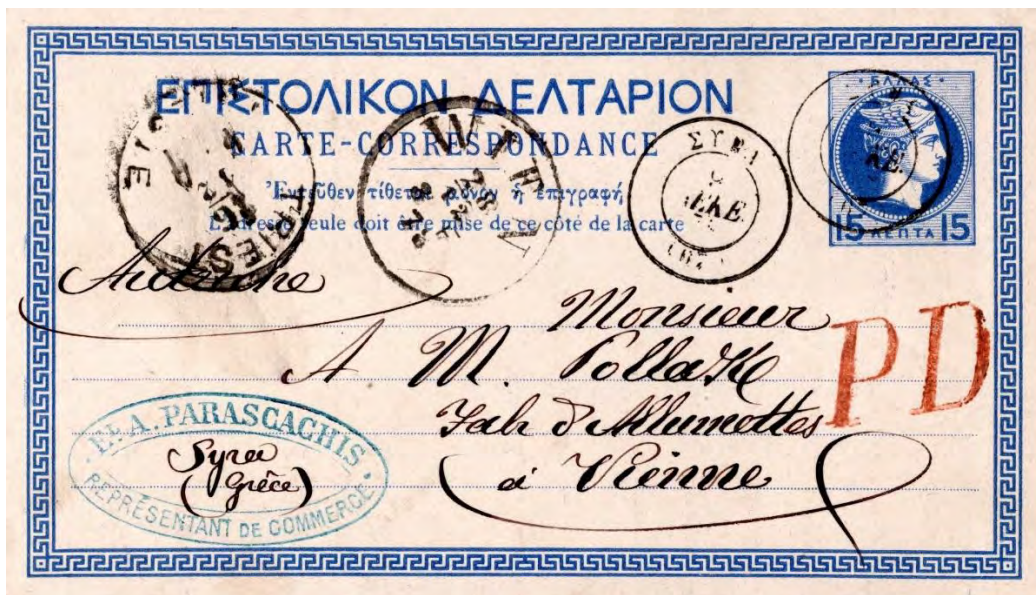 ΕΛΛΑΣ
ΕΠΙΣΤΟΛΙΚΟΝ ΔΕΛΤΑΡΙΟΝ
CARTE-CORRESPONDANCE
Ἐντεῦθεν τίθεται μόνον ἡ ἐπιγραφή
L'adresse seule doit être mise de ce côté de la carte
15 ΛΕΠΤΑ 15
WIEN
ΣΥΡΑ
ΔΕΚΕ.
TRIESTE
Autriche
Monsieur
A M. Pollak
Fab d'Allumettes
à Vienne
PD
A. PARASCACHIS
Syra
(Grèce)
REPRÉSENTANT DE COMMERCE